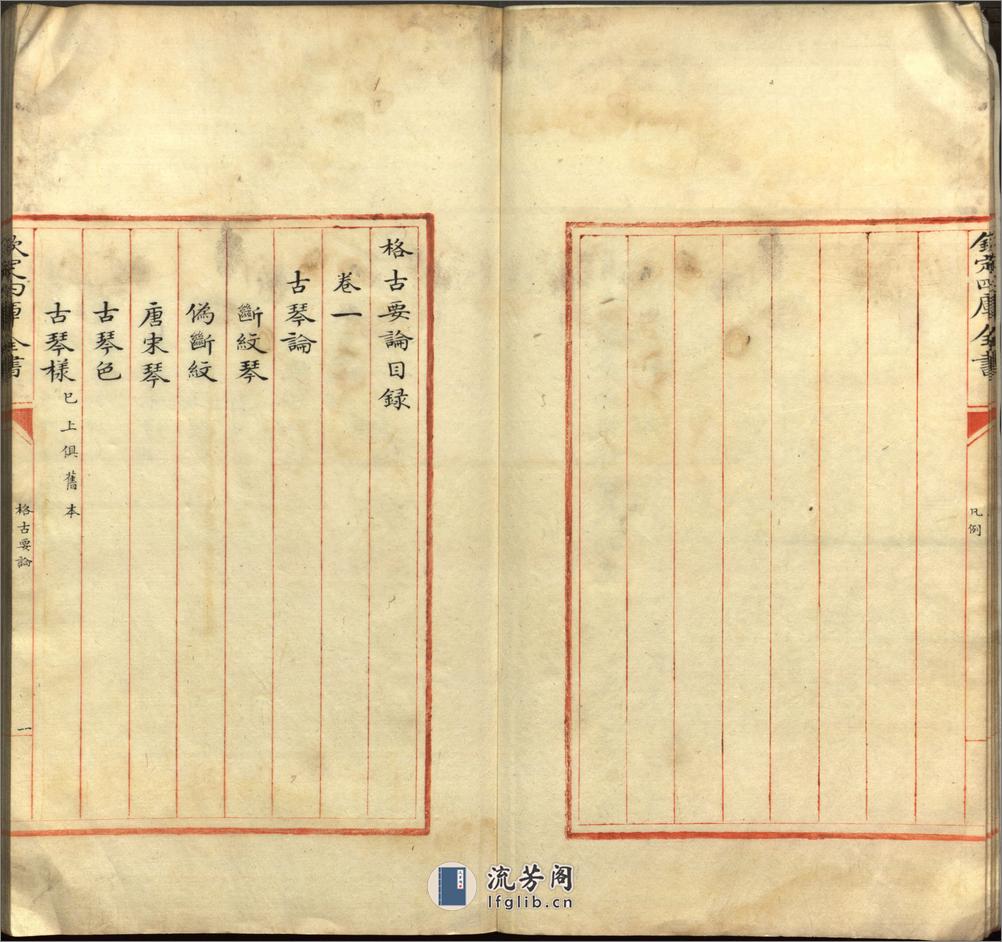 欽定四庫全書
凡例
格古要論目録
卷一
古琴論
斷紋琴
偽斷紋
唐宋琴
古琴色
古琴樣 已上俱舊本
欽定四庫全書
格古要論
一
流芳阁
lfglib.cn